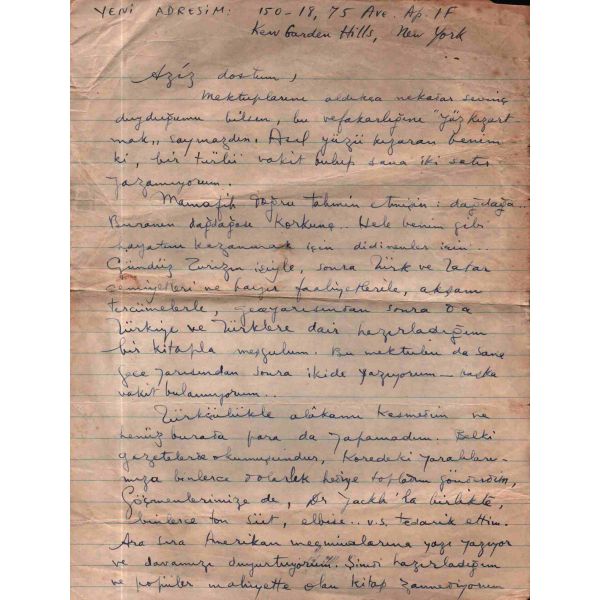 YENİ ADRESİM: 150-18, 75 Ave. Ap. 1F
Kew Garden Hills, New York
Aziz dostum,
Mektuplarını aldıkça nekadar sevinç
duyduğumu bilsen, bu vefakarlığına "yüz kızart
mak" saymazdın. Asıl yüzü kızaran benim
ki, bir türlü vakit bulup sana iki satır
yazamıyorum.
Mamafih doğru tahmin etmişsin: dağdağa..
Buranın dağdağası korkunç.. Hele benim gibi
hayatını kazanmak için didinenler için..
Gündüz Turizm işiyle, sonra Türk ve Tatar
cemiyetleri ve hayır faaliyetlerile, akşam
tercümelerle, geceyarısından sonra da
Türkiye ve Türklere dair hazırladığım
bir kitapla meşgulum. Bu mektubu da sana
gece yarısından sonra ikide yazıyorum – başka
vakit bulamıyorum..
Türkçülükle alâkamı kesmedim ve
henüz burada para da yapamadım. Belki
gazetelerde okumuşsundur, Koredeki yaralıları-
mıza binlerce dolarlık hediye toplatıp gönderdim,
Göçmenlerimize de, Dr Jackh'la birlikte,
binlerce ton süt, elbise.. v.s. tedarik ettim.
Ara sıra Amerikan mecmualarına yazı yazıyor
ve davamızı duyurtuyorum. Şimdi hazırladığım
ve popüler mahiyette olan kitap zannediyorum